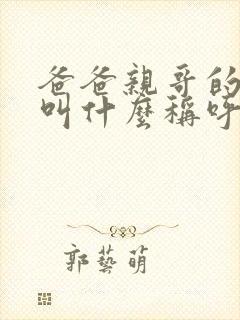 爸爸親哥的
叫什麼稱呼
郭藝萌